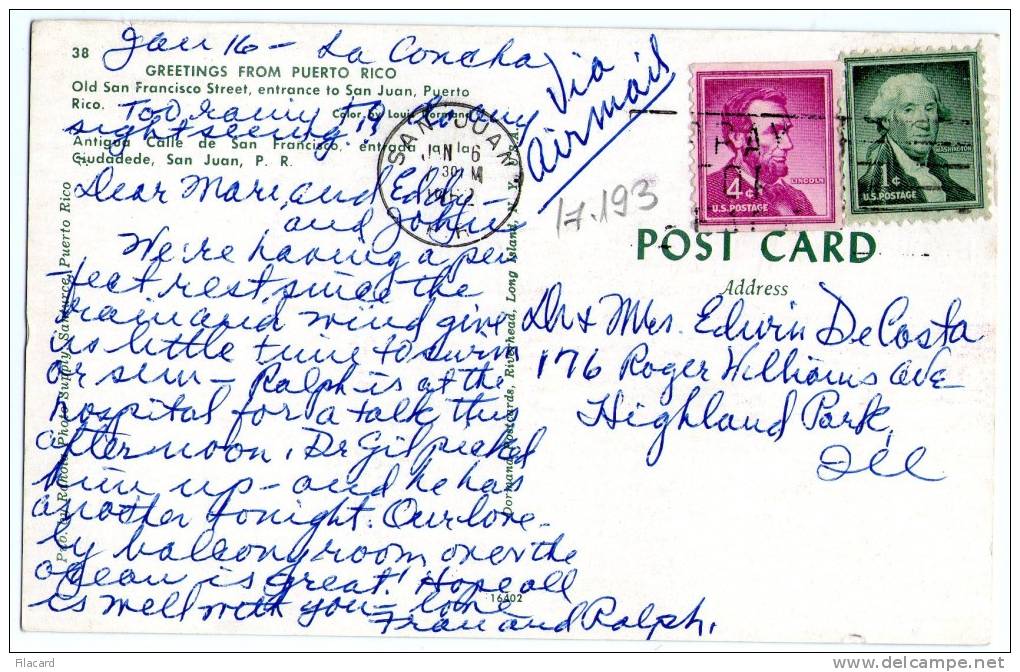 38
Jan 16 - La Concha
GREETINGS FROM PUERTO RICO
Old San Francisco Street, entrance to San Juan, Puerto
Rico.
Color by Louis Dormand
Too rainy to
sightseeing.
Antigua Calle de San Francisco, entrada
Ciudadede, San Juan, P. R.
Via
airmail
SAN JUAN
JAN 16
30 PM
1962
P.R.
17.193
4¢
LINCOLN
U.S. POSTAGE
1¢
WASHINGTON
U.S. POSTAGE
Dear Marc and Eddy -
and John -
We're having a per
fect rest, since the
rain and wind give
us little time to swim
or sun - Ralph is at the
hospital for a talk this
afternoon. Dr Gil picked
him up - and he has
another tonight. Our love-
ly balcony room over the
ocean is great! Hope all
is well with you - love
Fran and Ralph.
Pub. by Rahola Photo Supply, Santurce, Puerto Rico
Dormand Postcards, Riverhead, Long Island, N. Y.
16402
POST CARD
Address
Dr & Mrs. Edwin DeCosta
176 Roger Williams Ave
Highland Park,
Ill
Filacard
www.delcampe.net